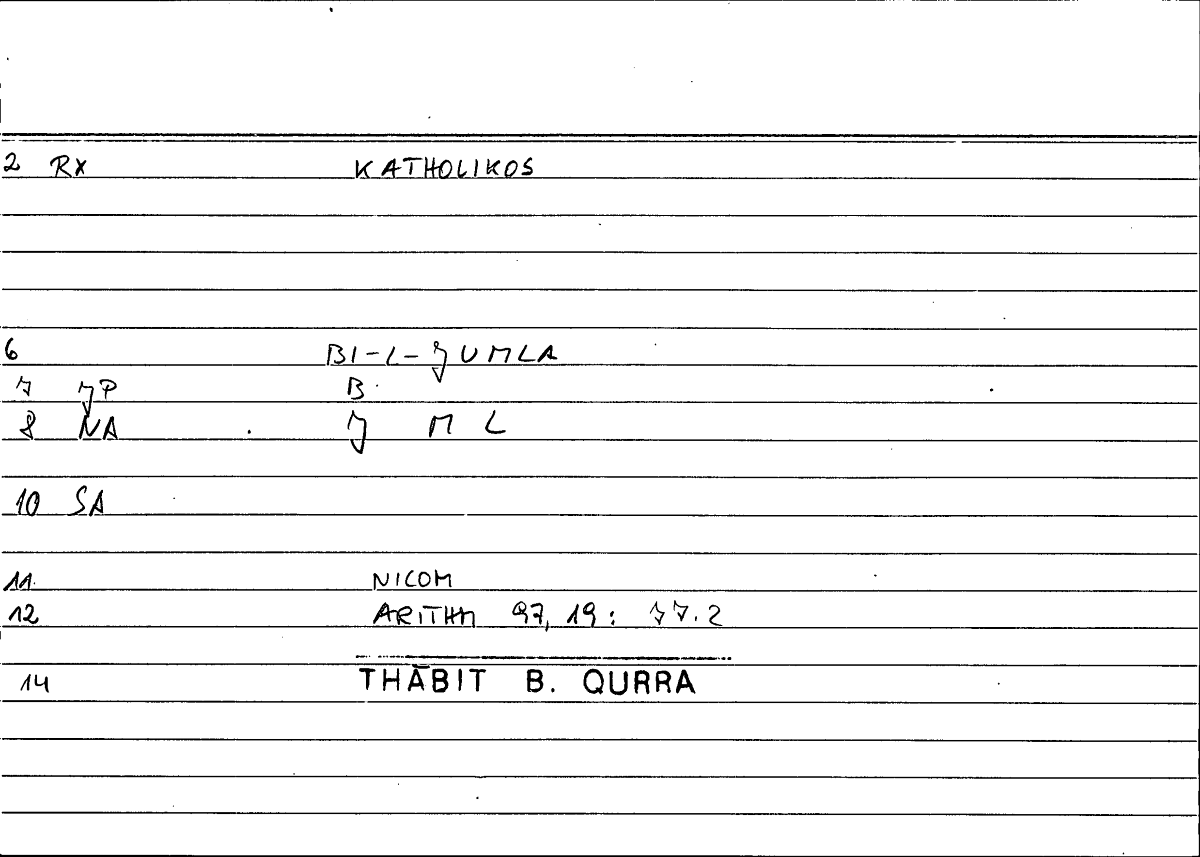 2 RX KATHOLIKOS
6 BI-L-JUMLA
7 JP B
8 NA J M L
10 SA
11 NICOM
12 ARITHM 97, 19: 77.2
14 THĀBIT B. QURRA